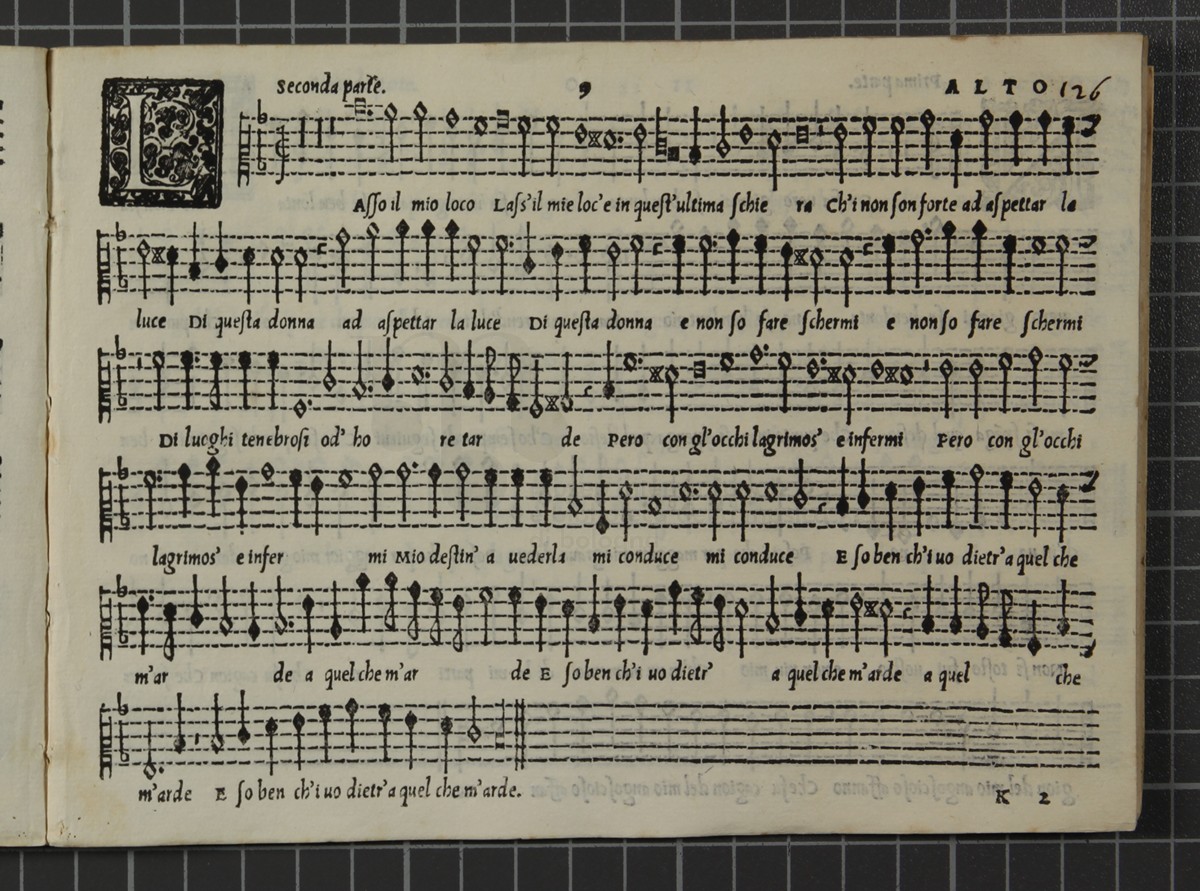 Seconda parte. 9 ALTO 126
L
Asso il mio loco Lass'il mie loc'e in quest'ultima schie ra Ch'i non son forte ad aspettar la
luce Di questa donna ad aspettar la luce Di questa donna e non so fare schermi e non so fare schermi
Di luoghi tenebrosi od' ho re tar de Pero con gl'occhi lagrimos' e infermi Pero con gl'occhi
lagrimos' e infer mi Mio destin' a uederla mi conduce mi conduce E so ben ch'i uo dietr'a quel che
m'ar de a quel che m'ar de E so ben ch'i uo dietr' a quel che m'arde a quel che
m'arde E so ben ch'i uo dietr'a quel che m'arde.
K 2